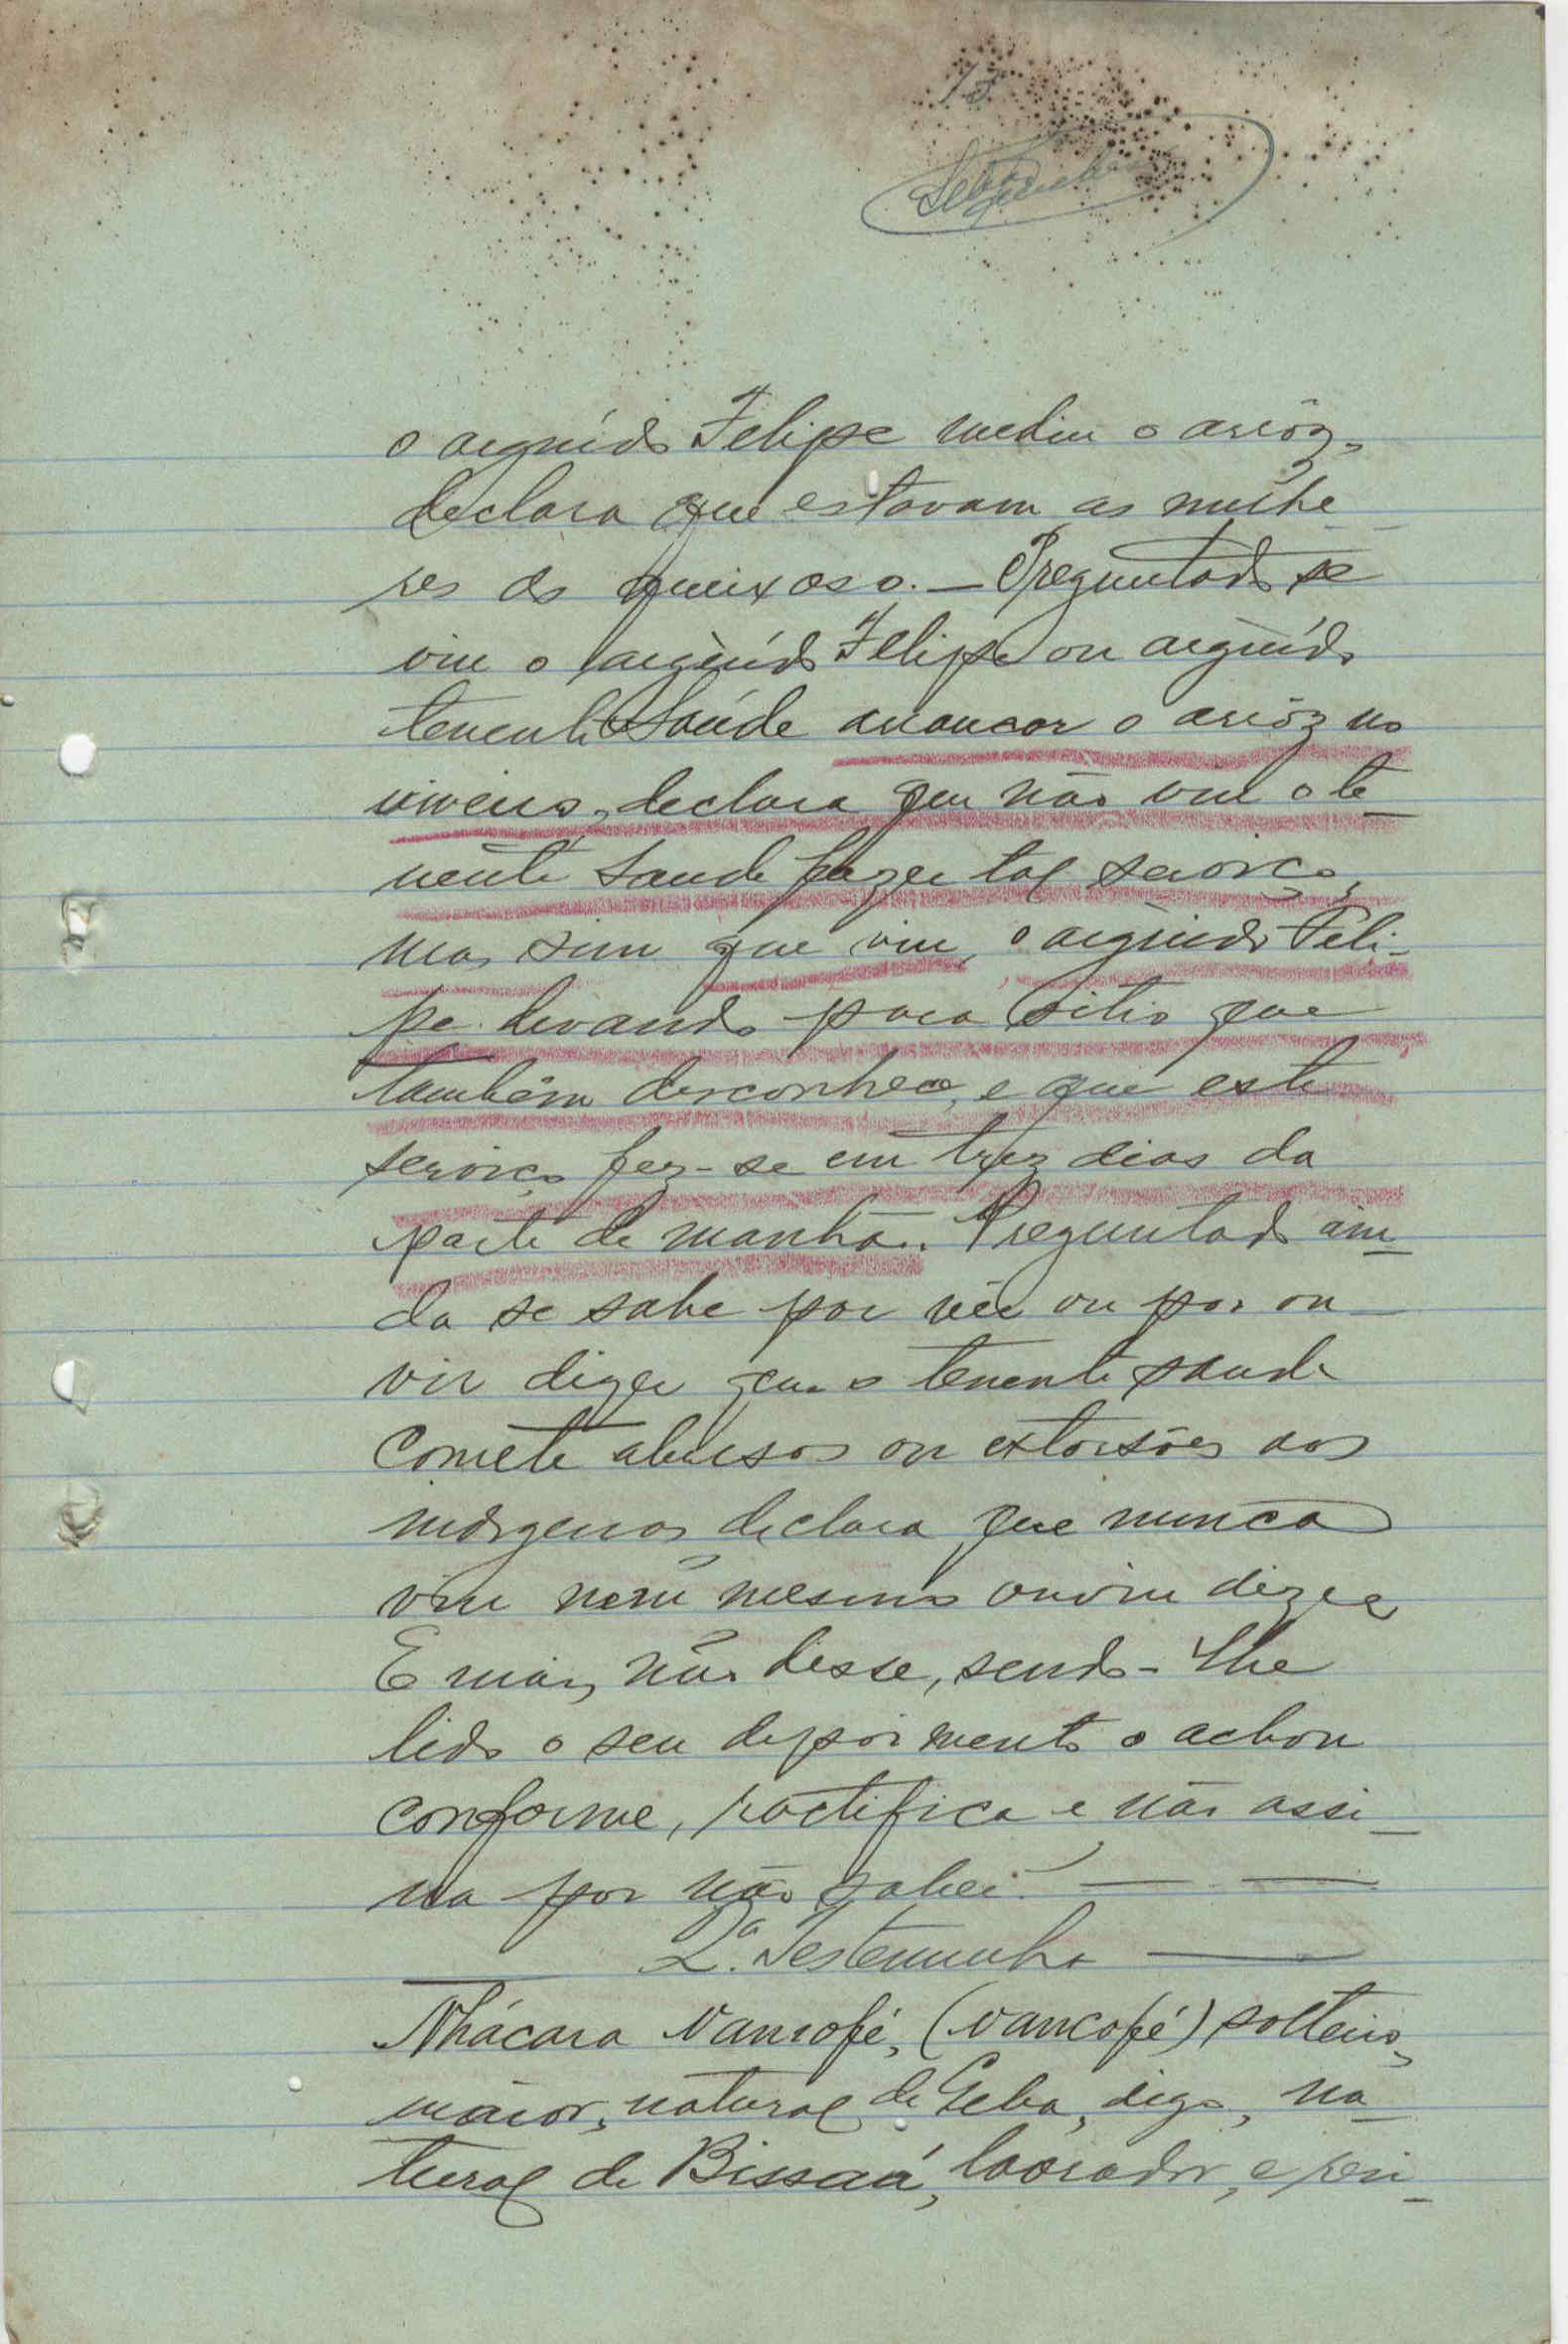 13
o arguido Felipe mediu o arrôz,
declara que estavam as mulhe-
res do queixoso. — Preguntado se
viu o argüido Felipe ou argüido
tenente Saúde arrancar o arrôz no
viveiro, declara que não viu o te-
nente Saude fazer tal serviço,
mas sim que viu, o argüido Feli-
pe levando para sitio que
tambêm desconhece, e que este
serviço fez-se em trez dias da
parte de manhã. Preguntado ain-
da se sabe por vêr ou por ou-
vir dizer que o tenente Saude
comete abusos ou extorsões aos
indigenas declara que nunca
viu nem mesmo ouviu dizer
E mais não disse, sendo-lhe
lido o seu depoimento o achou
conforme, ractifica e não assi-
na por não saber. — —
2.ª Testemunha —
Nhácara Vancofé, (Vancofé) solteiro,
maior, natural de Geba, digo, na-
tural de Bissau, lavrador, e resi-